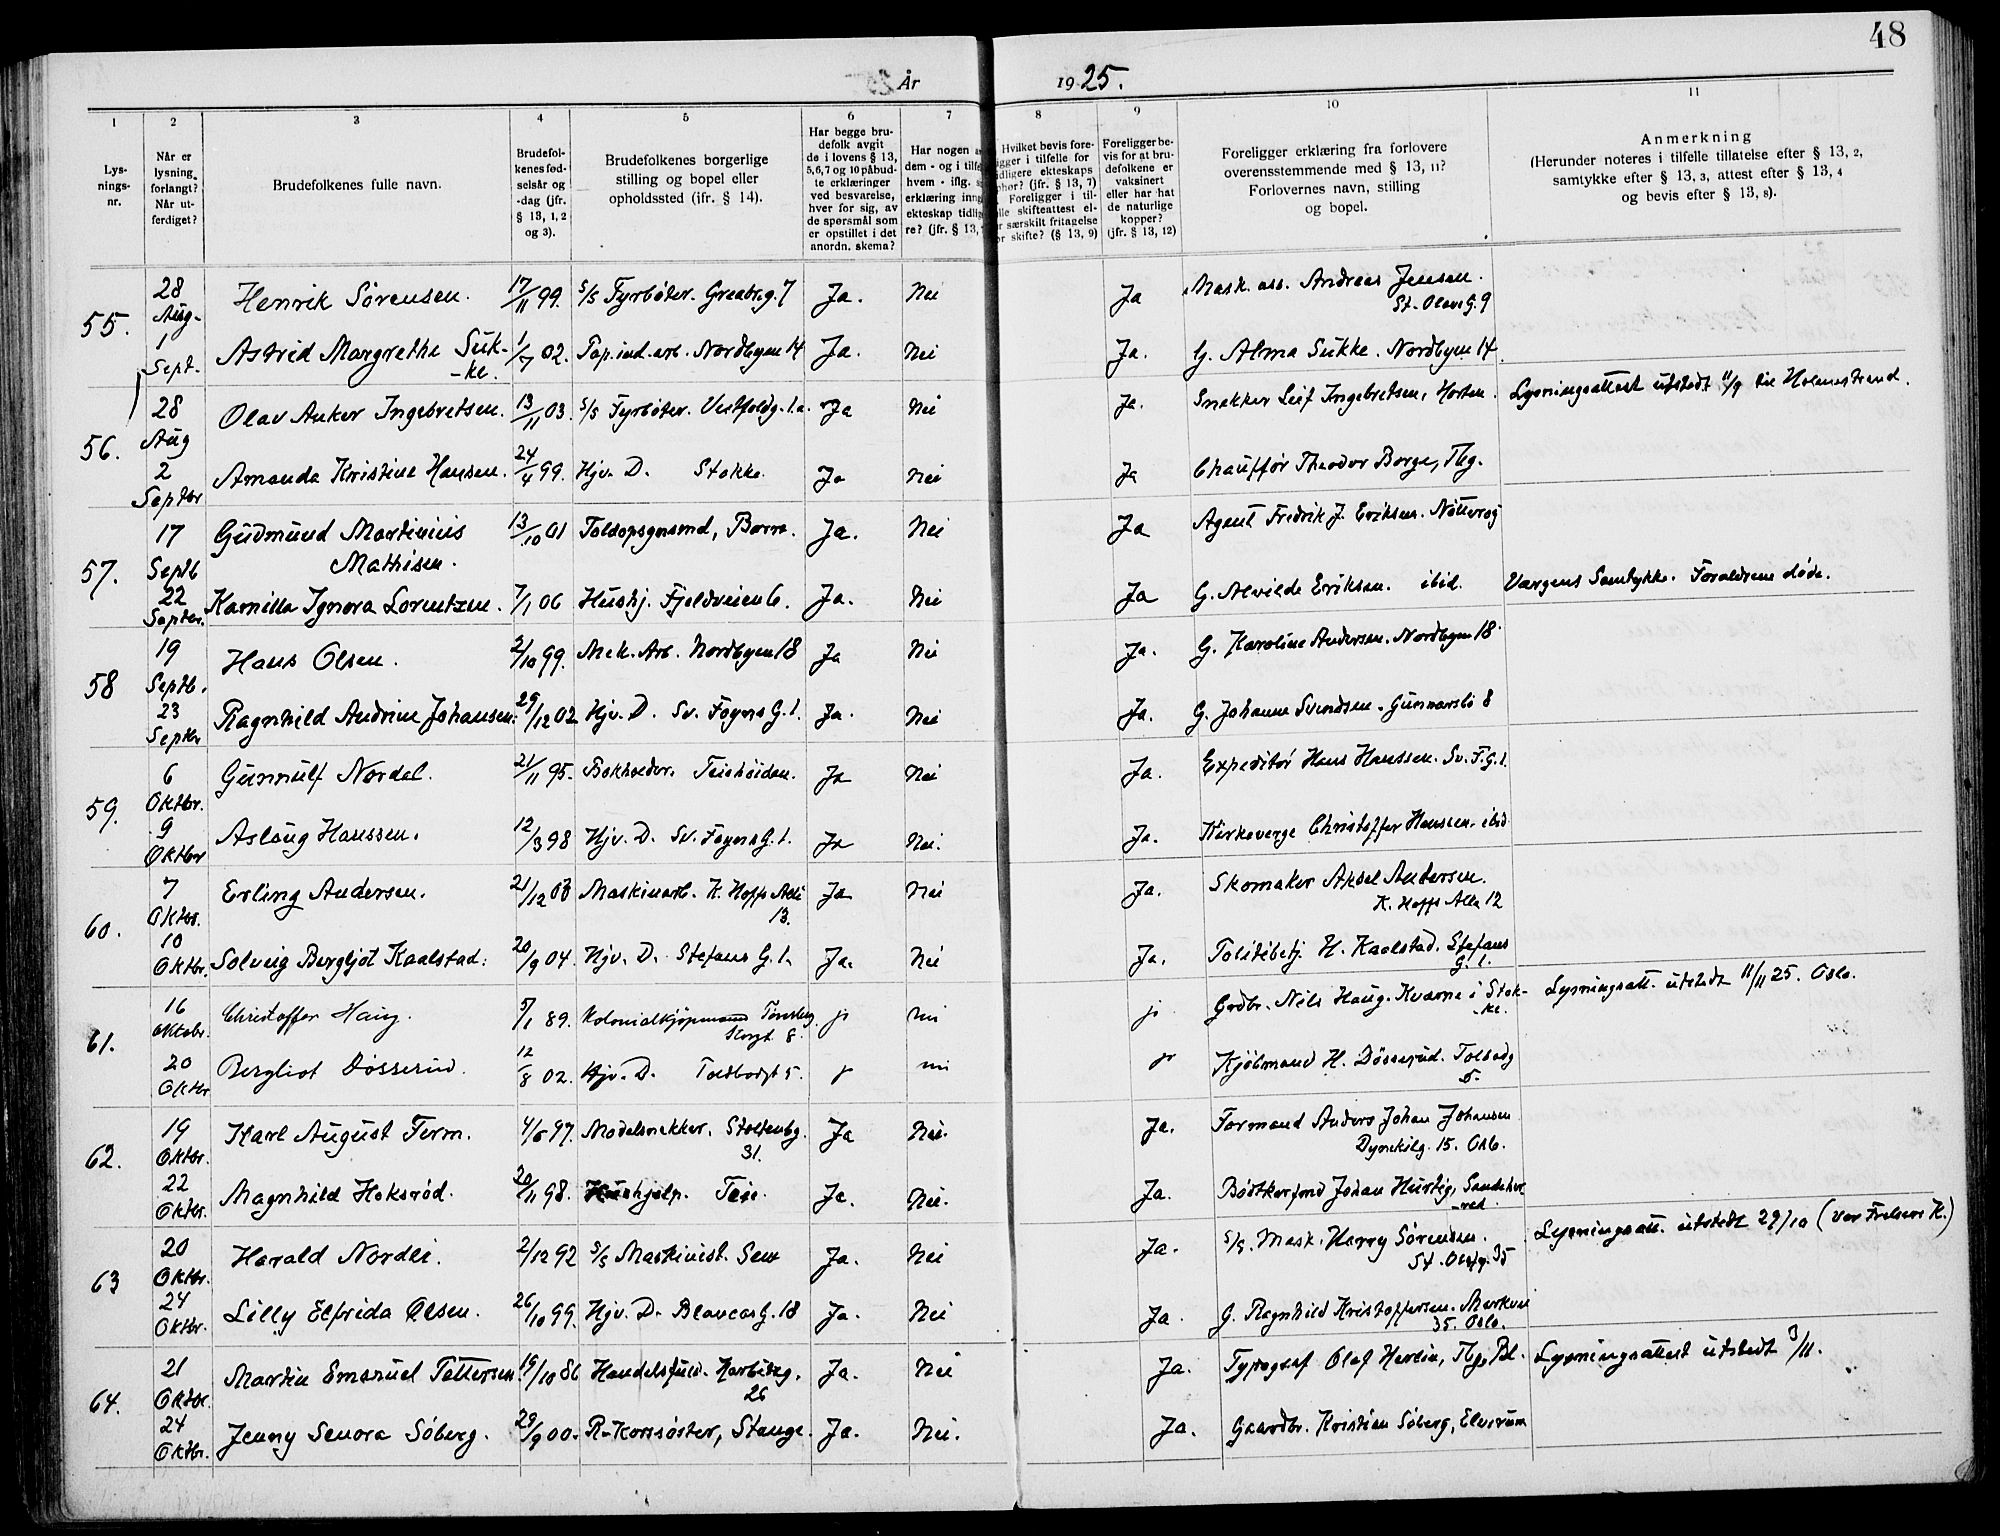 48
År
19 25.
1
2
3
4
5
6
7
8
9
10
11
Lys-
nings-
nr.
Når er
lysning
forlangt?
Når ut-
ferdiget?
Brudefolkenes fulle navn.
Brudefol-
kenes fød-
selsår og
-dag (jfr.
§ 13, 1, 2
og 3).
Brudefolkenes borgerlige
stilling og bopel eller
opholdssted (jfr. § 14).
Har begge bru-
defolk avgit
de i lovens § 13,
5,6,7 og 10 påbud-
te erklæringer
ved besvarelse,
hver for sig, av
de spørsmål som
er opstillet i det
anordn. skema?
Har nogen
dem - og i tilfe
hvem - iflg.
erklæring inng
ekteskap tidlig
re? (jfr. § 13,
Hvilket bevis fore-
ligger i tilfelle for
idligere ekteskaps
phør? (jfr. § 13, 7)
Foreligger i til-
lle skifteattest el-
r særskilt fritagelse
or skifte? (§ 13, 9)
Foreligger be-
vis for at bru-
defolkene er
vaksinert
eller har hat
de naturlige
kopper?
(jfr. § 13, 12)
Foreligger erklæring fra forlovere
overensstemmende med § 13, 11?
Forlovernes navn, stilling
og bopel.
Anmerkning
(Herunder noteres i tilfelle tillatelse efter § 13, 2,
samtykke efter § 13, 3, attest efter § 13, 4
og bevis efter § 13, 8).
55. 28 Aug- Henrik Sørensen. 17/11 99. s/s Fyrbøter. Ja. Nei Ja Mask. ass. Andreas Jensen.
St. Olavs G. 9
1 Sept. Astrid Margrethe Suk- 1/7 02. Pap.ind.arb. Nordbyen 14 Ja. Nei Ja. G. Alma Sukke. Nordbyen 14
-ke.
56. 28 Aug Olav Anker Ingebretsen. 13/11 03. s/s Fyrbøter. Vestfoldg. 1.a. Ja Nei Ja. Snekker Leif Ingebretsen, Horten. Lysningsattest utstedt 11/9 til Holmestrand.
2 Septbr Amanda Kristine Hansen. 24/4 99. Hjv. D. Stokke. Ja Nei Ja Chauffør Theodor Borge, Tbg.
57. 17 Septb Gudmund Martinius 13/10 01 Toldopsynsmd, Borre. Ja. Nei Ja Agent Fredrik J. Eriksen. Nøtterøy
Mathisen.
22 Septbr. Kamilla Ignora Lorentzen. 7/1 06 Hushj. Fjeldveien 6. Ja. Nei Ja G. Alvilde Eriksen. ibid. Værgens Samtykke. Foreldrene døde.
58 19 Septb. Hans Olsen. 2/10 99. Mek. Arb. Nordbyen 18 Ja Nei Ja. G. Karoline Andersen. Nordbyen 18
23 Septbr Ragnhild Andrine Johansen. 29/12 02 Hjv. D. Sv. Foyns G. 1. Ja. Nei Ja. G. Johanne Svendsen. Gunnarsbø 8
59. 6 Oktbr. Gunnulf Nordal. 21/11 95. Bokholder. Teiehøiden. Ja Nei Ja. Expeditør Hans Hanssen. Sv. F.G. 1.
9 Oktbr Aslaug Hanssen. 12/3 98 Hjv. D. Sv. Foyns G. 1. Ja Nei. Ja. Kirkeverge Christoffer Hanssen. ibid.
60. 7 Oktbr. Erling Andersen. 21/12 Maskinarb. K. Hopps Alle Ja Nei Ja. Skomaker Aksel Andersen.
13. K. Hopps Alle 12
10 Oktbr. Solveig Bergljot Kaalstad. 20/9 04. Hjv. D. Stefans G. 1. Ja. Nei Ja. Politibetj. H. Kaalstad. Stefans
G. 1.
61. 16 Oktobr. Christoffer Haug. 5/1 89. Kolonialkjøpmand Tønsberg ja nei ja Grdbr. Nils Haug. Kværne i Stok- Lysningsatt. utstedt 11/11 25. Oslo.
Storgt 8. -ke.
20 Oktbr Bergliot Døsserud. 12/8 02. Hjv. D. Toldbodgt 5. ja nei ja Kjøbmand H. Døsserud. Toldbodg
5.
62. 19 Oktbr. Karl August Ferm. 4/6 97. Modelsnekker. Stoltenbg. Ja Nei. Ja. Formand Anders Johan Johansen
31. Dynekilg. 15. Oslo.
22 Oktbr. Magnhild Hoksrød. 20/11 98. Hushjelp. Teie. Ja. Nei. Ja. Bødtkerfmd Johan Hurtig, Sandeher
-red
63 20 Oktbr. Harald Nordli. 2/12 92 s/s Maskinist. Sem Ja. Nei Ja. s/s. Mask. Harry Sørensen. Lysningsatt. utstedt 29/10 (Vor Frelsers K.)
St. Olafsg. 35
24 Oktbr. Lilly Elfrida Olsen. 26/10 99. Hjv. D. Blancas G. 18 Ja. Nei Ja. G. Ragnhild Kristoffersen. Markvei
35. Oslo.
64. 21 Oktbr. Martin Emanuel Pettersen. 19/10 86 Handelsfuldm. Ja. Nei Ja. Typograf Olaf Herlin, Tbgs Bl. Lysningsattest utstedt 3/11.
26
24 Oktbr. Jenny Senora Søberg. 29/9 00. R-Korssøster, Stange. Ja. Nei. Ja. Gaardbr. Kristian Søberg, Elverum